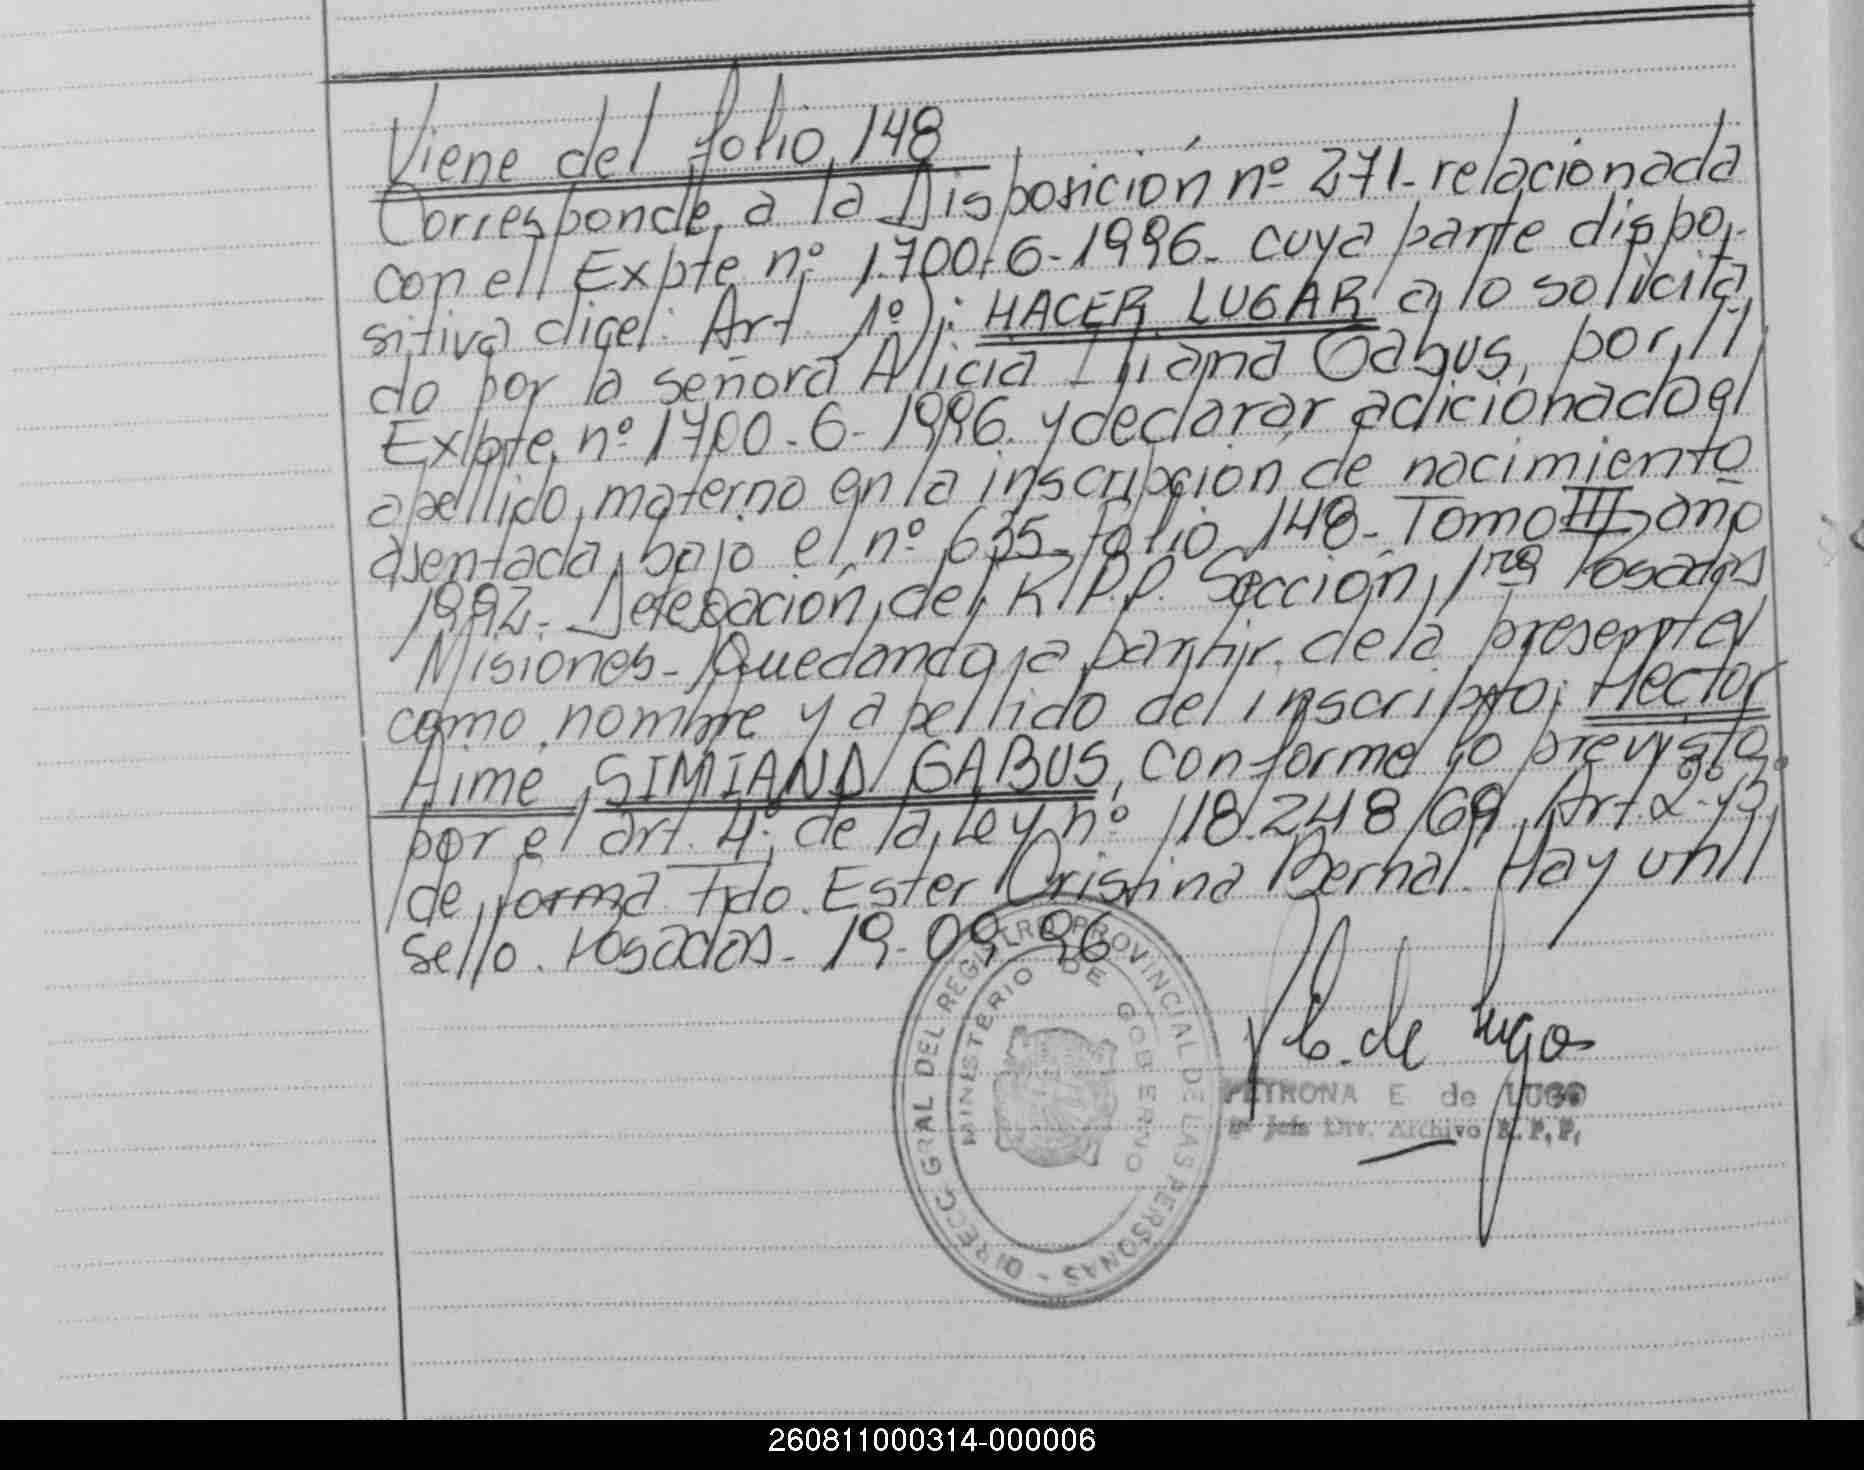 Viene del folio 148
Corresponde a la Disposición nº 271- relacionada
con el Expte nº 1.700-6-1996- cuya parte dispo-
sitiva dice: Art. 1º): HACER LUGAR a lo solicita
do por la señora Alicia Iliana Gabus, por
Expte nº 1700-6-1996 y declarar adicionado el
apellido materno en la inscripción de nacimiento
asentada bajo el nº 635 folio 148- Tomo III año
1992- Delegación del R.P.P. Sección 1ra Posadas
Misiones- Quedando a partir de la presente
como nombre y apellido del inscripto: Hector
Aime SIMIANO GABUS, conforme lo previsto
por el art. 4º de la Ley nº 18.248/69 Art. 2º y 3º
de forma Fdo. Ester Cristina Bernal. Hay un
sello. Posadas- 19-09-96
DIRECC. GRAL DEL REGISTRO PROVINCIAL DE LAS PERSONAS -
MINISTERIO DE GOBIERNO
E. de Lugo
PETRONA E de LUGO
Jefe Div. Archivo R.P.P.
260811000314-000006